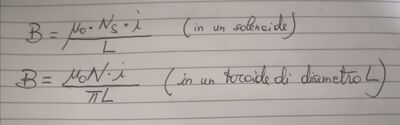 B = μ₀·N_S·i / L (in un solenoide)
B = μ₀N·i / πL (in un toroide di diametro L)